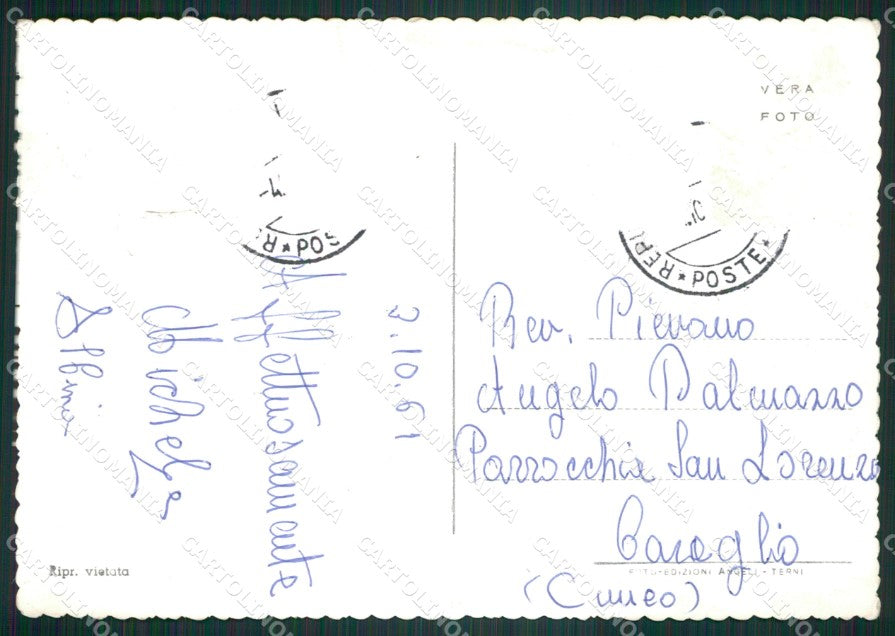 VERA
FOTO
3.10.61
Affettuosamente
Michele
Albino
REP
POSTE
Rev. Pievano
Angelo Dalmazzo
Parrocchia San Lorenzo
Caraglio
(Cuneo)
Ripr. vietata
FOTO-EDIZIONI ANGELI - TERNI
CARTOLINOMANIA